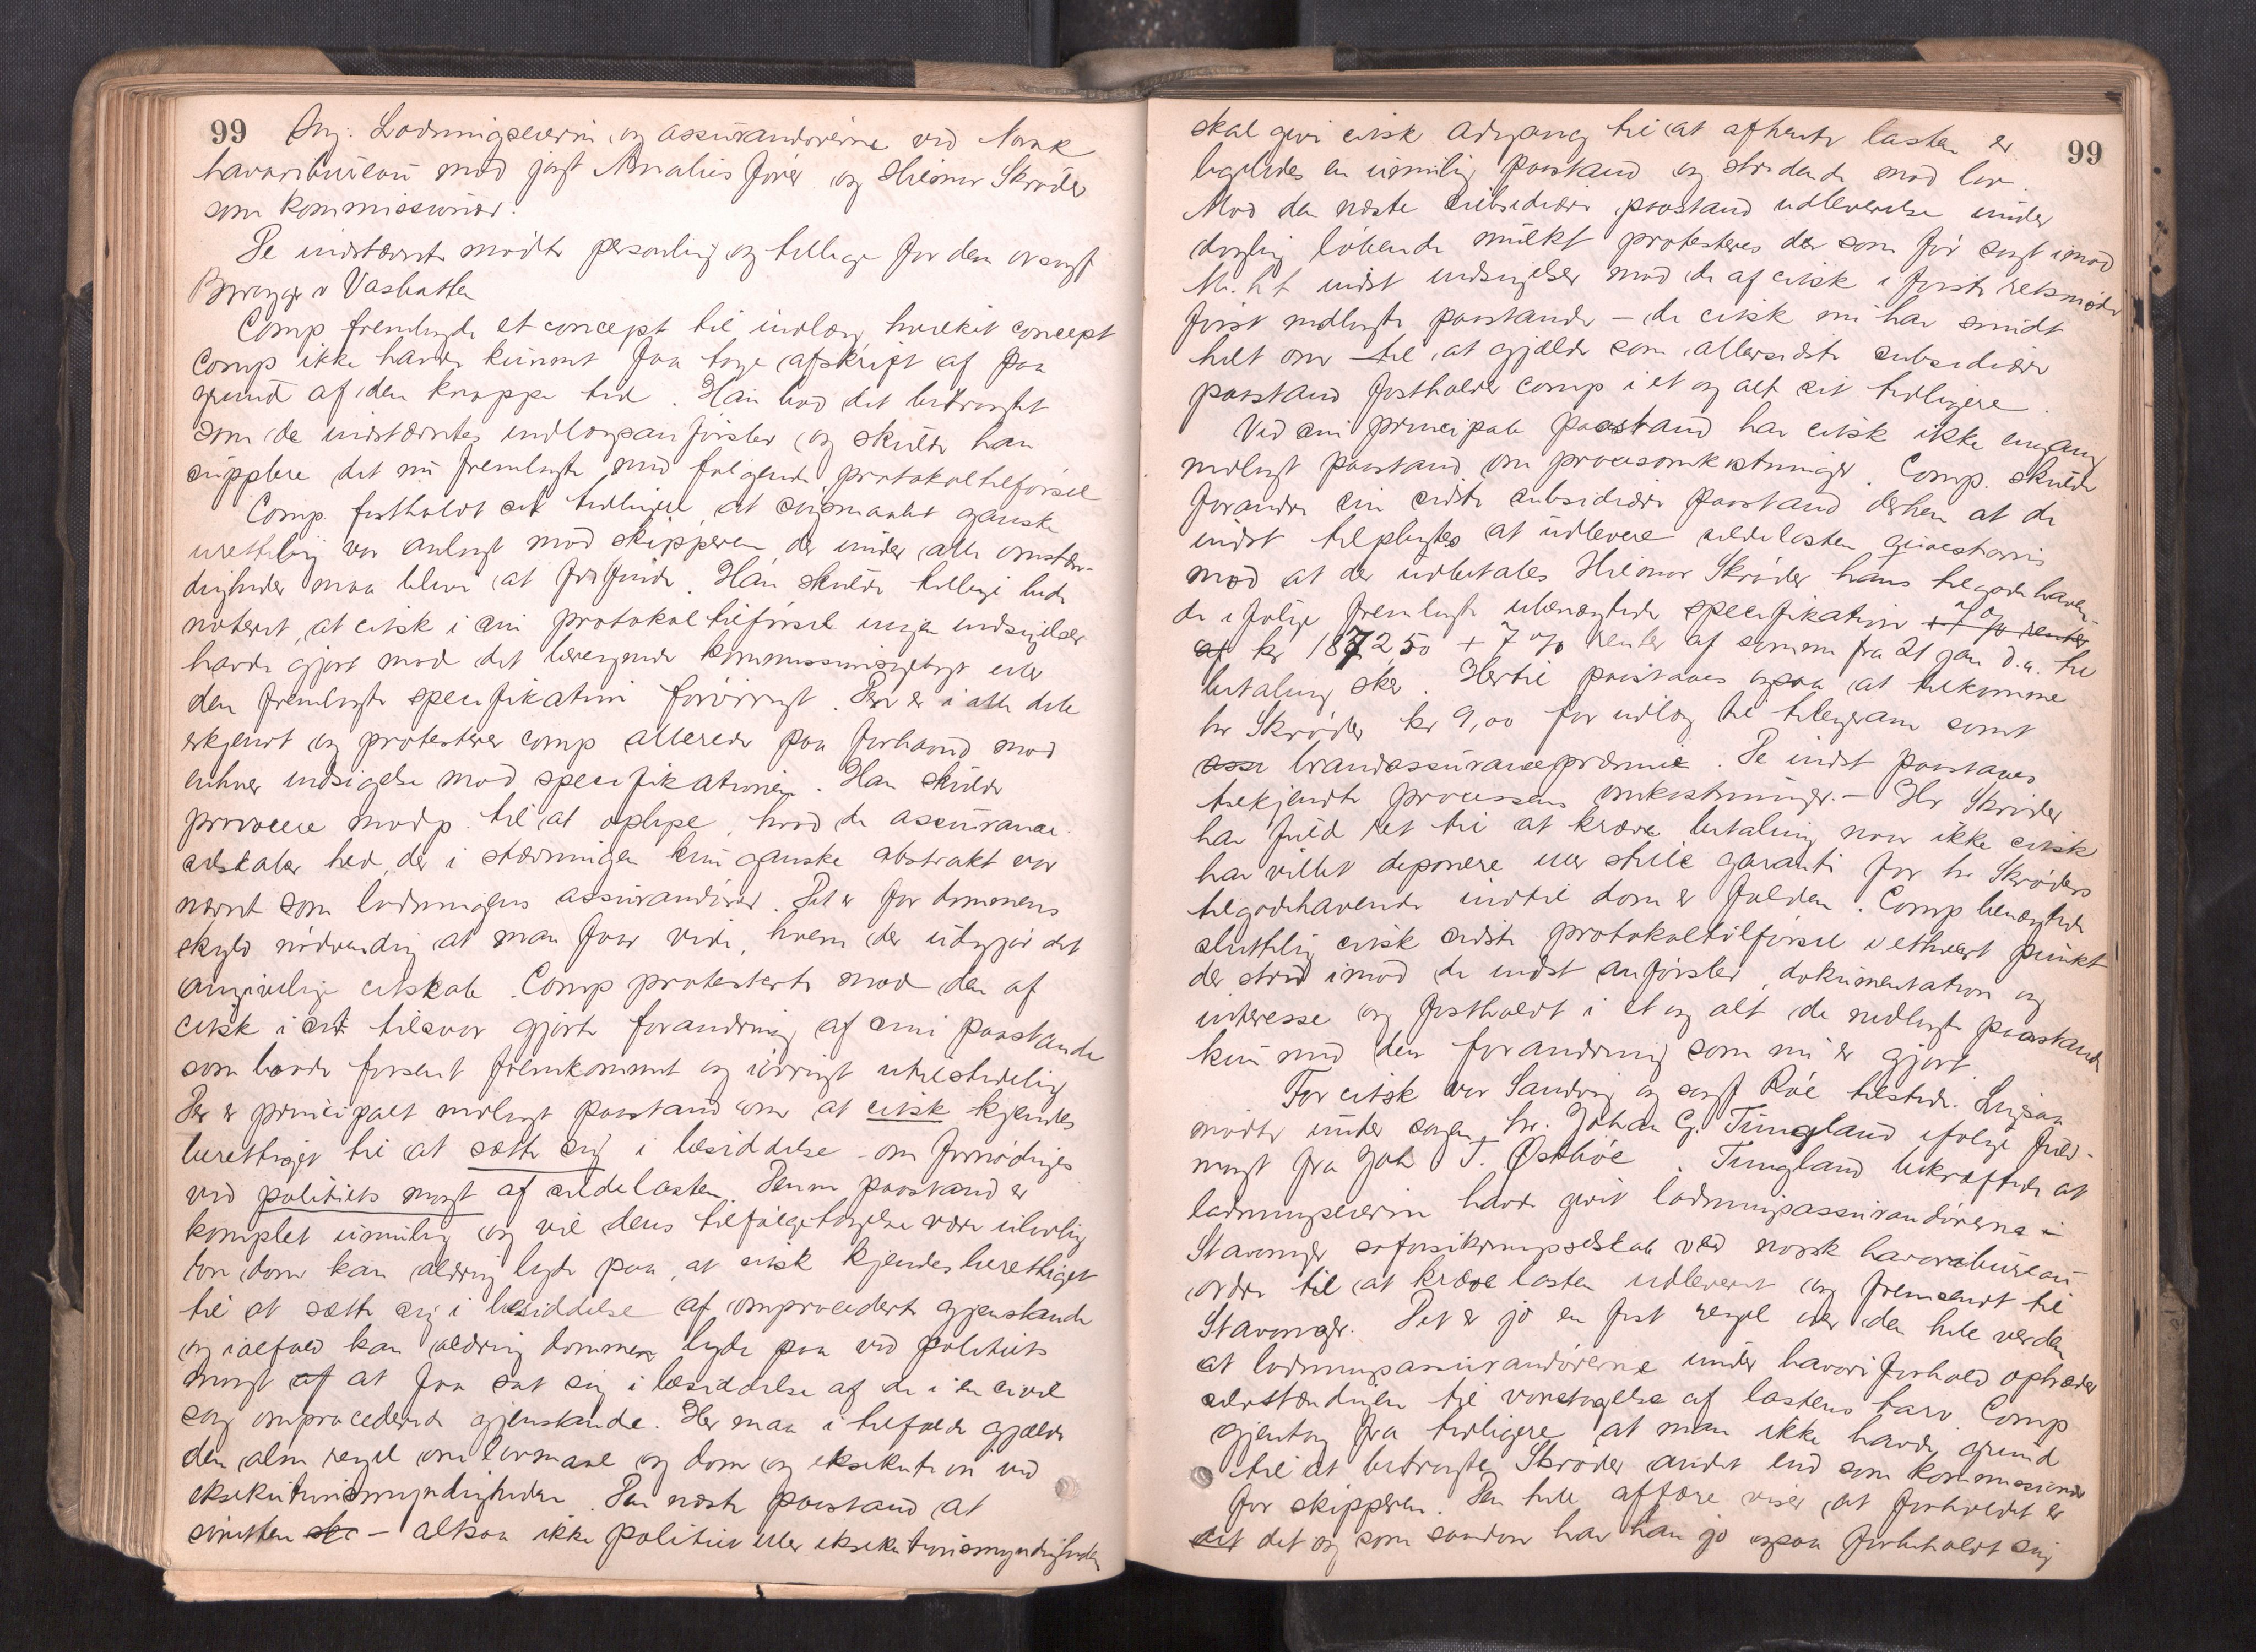 99
Sag: Ladningseierne og assurandørerne ved Norsk
havaribureau mod jagt Amalies fører og Hielmar Skrøder
som kommissionær.
De indstævnte mødte personlig og tillige for dem orsagf
v Vasbotten
Comp fremlagde et concept til indlæg, hvilket concept
Comp ikke havde kunnet faa tage afskrift af paa
grund af den knappe tid. Han bad det betragtet
som de indstævntes indlægsanførsler og skulde han
supplere det nu fremlagte med følgende protokoltilførsel
Comp. fastholdt sit tidligere, at søgsmaalet ganske
urettelig var anlagt mod skipperen, der under alle omstæn-
digheder maa blive at frifinde. Han skulde tillige bede
noteret, at citsk i sin protokoltilførsel ingen indsigelser
havde gjort mod det beregnede kommissionsgebyr eller
den fremlagte specifikation forøvrigt. Den er i alle dele
erkjendt og protesterer comp allerede paa forhaand mod
enhver indsigelse mod specifikationen. Han skulde
provocere modp. til at oplyse, hvad de assurance-
selskaber hed, der i stævningen kun ganske abstrakt var
nævnt som ladningens assurandører. Det er for dommens
skyld nødvendig at man faar vide, hvem der udgjør det
angivelige citskab. Comp protesterte mod den af
citsk i sit tilsvar gjorte forandring af sin paastande
som havde forsent fremkommet og iøvrigt utilstedelig
Der er principalt nedlagt paastand om at citsk kjendes
berettiget til at sætte sig i besiddelse - om fornødiges
ved politiets magt af sildelasten. Denne paastand er
komplet umulig og vil dens tilfølgetagelse være ulovlig
ton dom kan aldrig lyde paa, at citsk kjendes berettiget
til at sætte sig i besiddelse af omprocederte gjenstande
og ialfald kan aldrig dommen lyde paa ved politiets
magt af at faa sat sig i besiddelse af de i en civil
sag omprocederede gjenstande. Her maa i tilfælde gjælde
den alm regel om lovmaal og dom og eksekution ved
eksekutionsmyndigheden. Den næste paastand at
indstævnte - altsaa ikke politiet eller eksekutionsmyndigheden
99
skal give citsk adgang til at afhente lasten er
ligeledes en umulig paastand og stridende mod lov.
Mod den næste subsidiære paastand udleverelse under
daglig løbende mulkt protesteres der som før sagt imod
M.h.t indst indsigelser mod de af citsk i første retsmøde
først nedlagte paastande - de citsk nu har smidt
helt om til, at gjælde som allersidste subsidiære
paastand fastholder comp i et og alt sit tidligere.
Ved sin principale paastand har citsk ikke engang
nedlagt paastand om procesomkostninger. Comp. skulde
forandre sin sidste subsidiære paastand derhen at de
indst tilpligtes at udlevere sildelasten quæstionis
mod at der udbetales Hielmar Skrøder hans tilgodehaven-
de ifølge fremlagte ubenægtede specifikation + 7 % renter
af kr 187250 + 7 % renter af summen fra 21 jan d.a. til
betaling sker. Hertil paastaaes ogsaa at tilkomme
hr Skrøder kr 9,00 for udlæg til telegram samt
assu brandassurancepræmie. De indst paastaaes
tilkjendte processens omkostninger. - Hr Skrøder
har fuld ret til at kræve betaling naar ikke citsk
har villet deponere eller stille garanti for hr Skrøders
tilgodehavende indtil dom er falden. Comp benægtede
sluttelig citsk sidste protokoltilførsel i ethvert punkt
der strid imod de indst anførsler, dokumentation og
interesse og fastholdt i et og alt de nedlagte paastande
kun med den forandring som nu er gjort.
For citsk var Sandvig og sagf Røe tilstede.
mødte under sagen hr. Johan G. Tungland ifølge fuld-
magt fra Joh T. Østbøe. Tungland bekræftede at
ladningseieren havde givet ladningsassurandørerne i
Stavanger søforsikringsselskab ved norsk havaribureau
ordre til at kræve lasten udleveret og fremsendt til
Stavanger. Det er jo en fast regel over den hele verden
at ladningsassurandørerne under havariforhold optræder
selvstændigen til varetagelse af lastens tarv. Comp
gjentog fra tidligere at man ikke havde grund
til at betragte Skrøder andet end som kommissionær
for skipperen. Den hele affære viser at forholdet er
det det og som saadan har han jo ogsaa forbeholdt sig